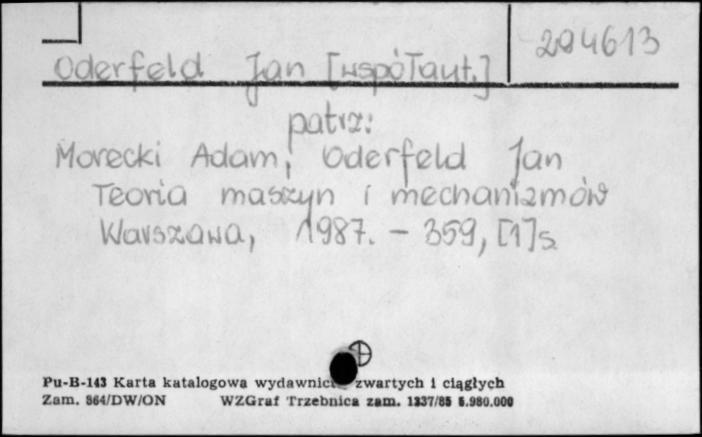 294613
Oderfeld Jan [współaut.]
patrz:
Morecki Adam, Oderfeld Jan
Teoria maszyn i mechanizmów
Warszawa, 1987. - 359, [1]s.
Pu-B-143 Karta katalogowa wydawnic zwartych i ciągłych
Zam. 864/DW/ON WZGraf Trzebnica zam. 1337/85 5.980.000